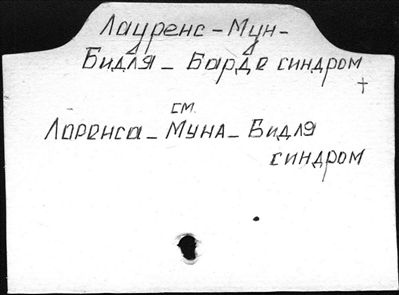 Лауренс-Мун-
Бидля-Барде синдром
см.
Лоренса-Муна-Бидля
синдром